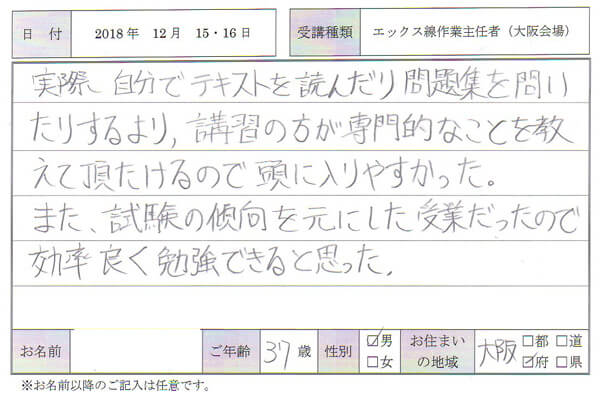 日 付 2018年 12月 15・16日 受講種類 エックス線作業主任者（大阪会場）
実際、自分でテキストを読んだり問題集を問い
たりするより，講習の方が専門的なことを教
えて頂たけるので頭に入りやすかった。
また、試験の傾向を元にした受業だったので
効率良く勉強できると思った．
お名前 ご年齢 37歳 性別 ☑男 □女 お住まいの地域 大阪 □都 □道 ☑府 □県
※お名前以降のご記入は任意です。